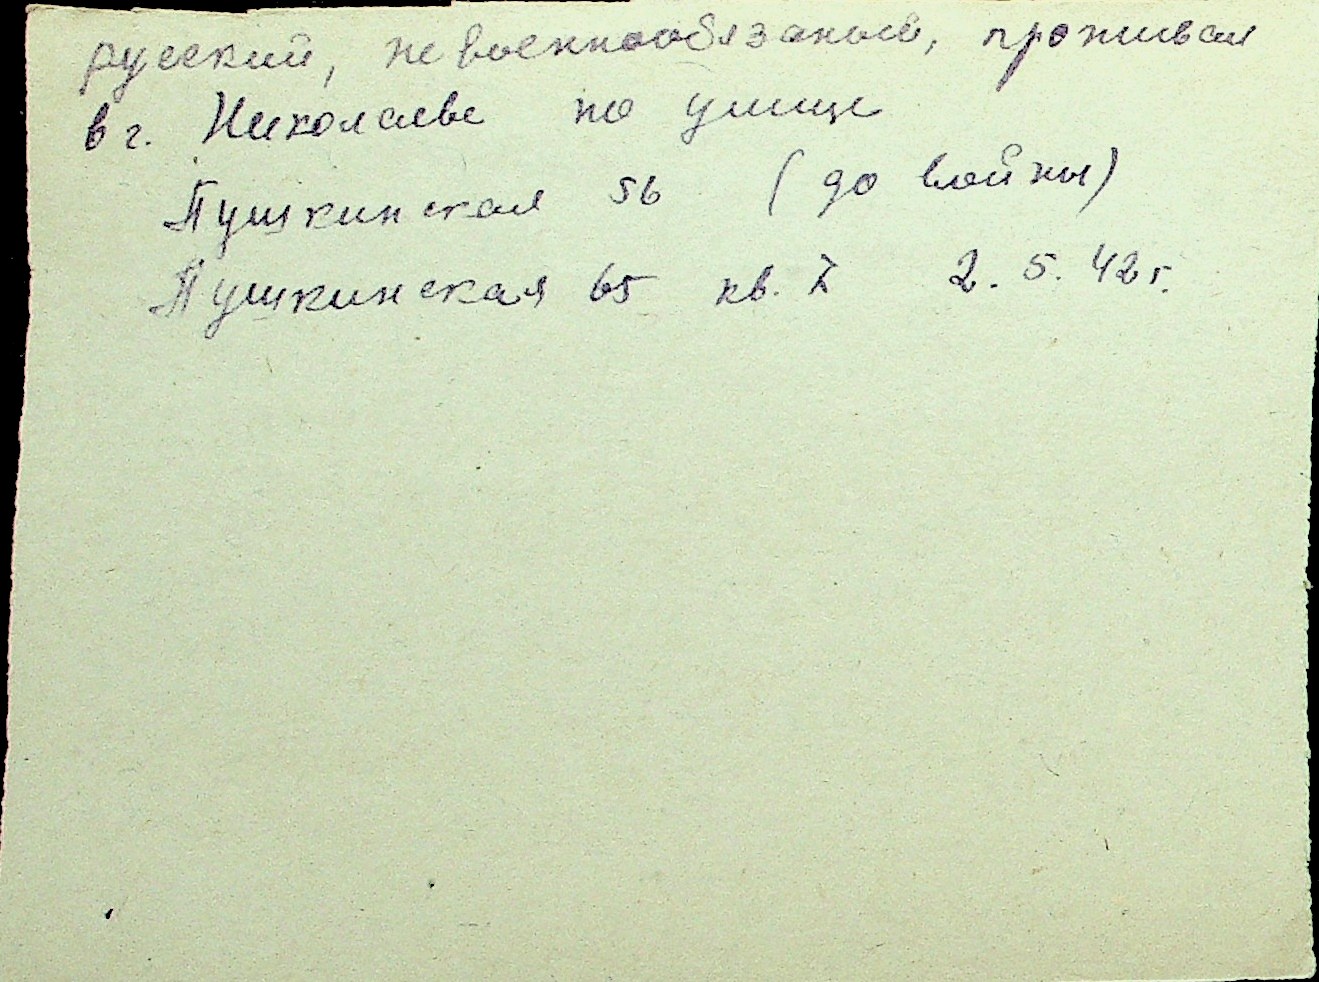 русский, невоеннообязаный, проживал
в г. Николаеве по улице
Пушкинская 56 (до войны)
Пушкинская 65 кв. 7 2. 5. 42 г.